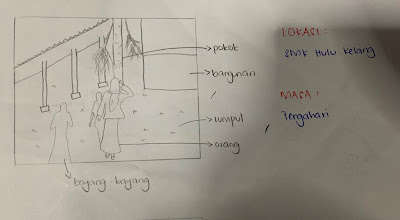 pokok
bangunan
rumput
orang
bayang-bayang
LOKASI :
SMK Hulu Kelang
MASA :
Tengahari